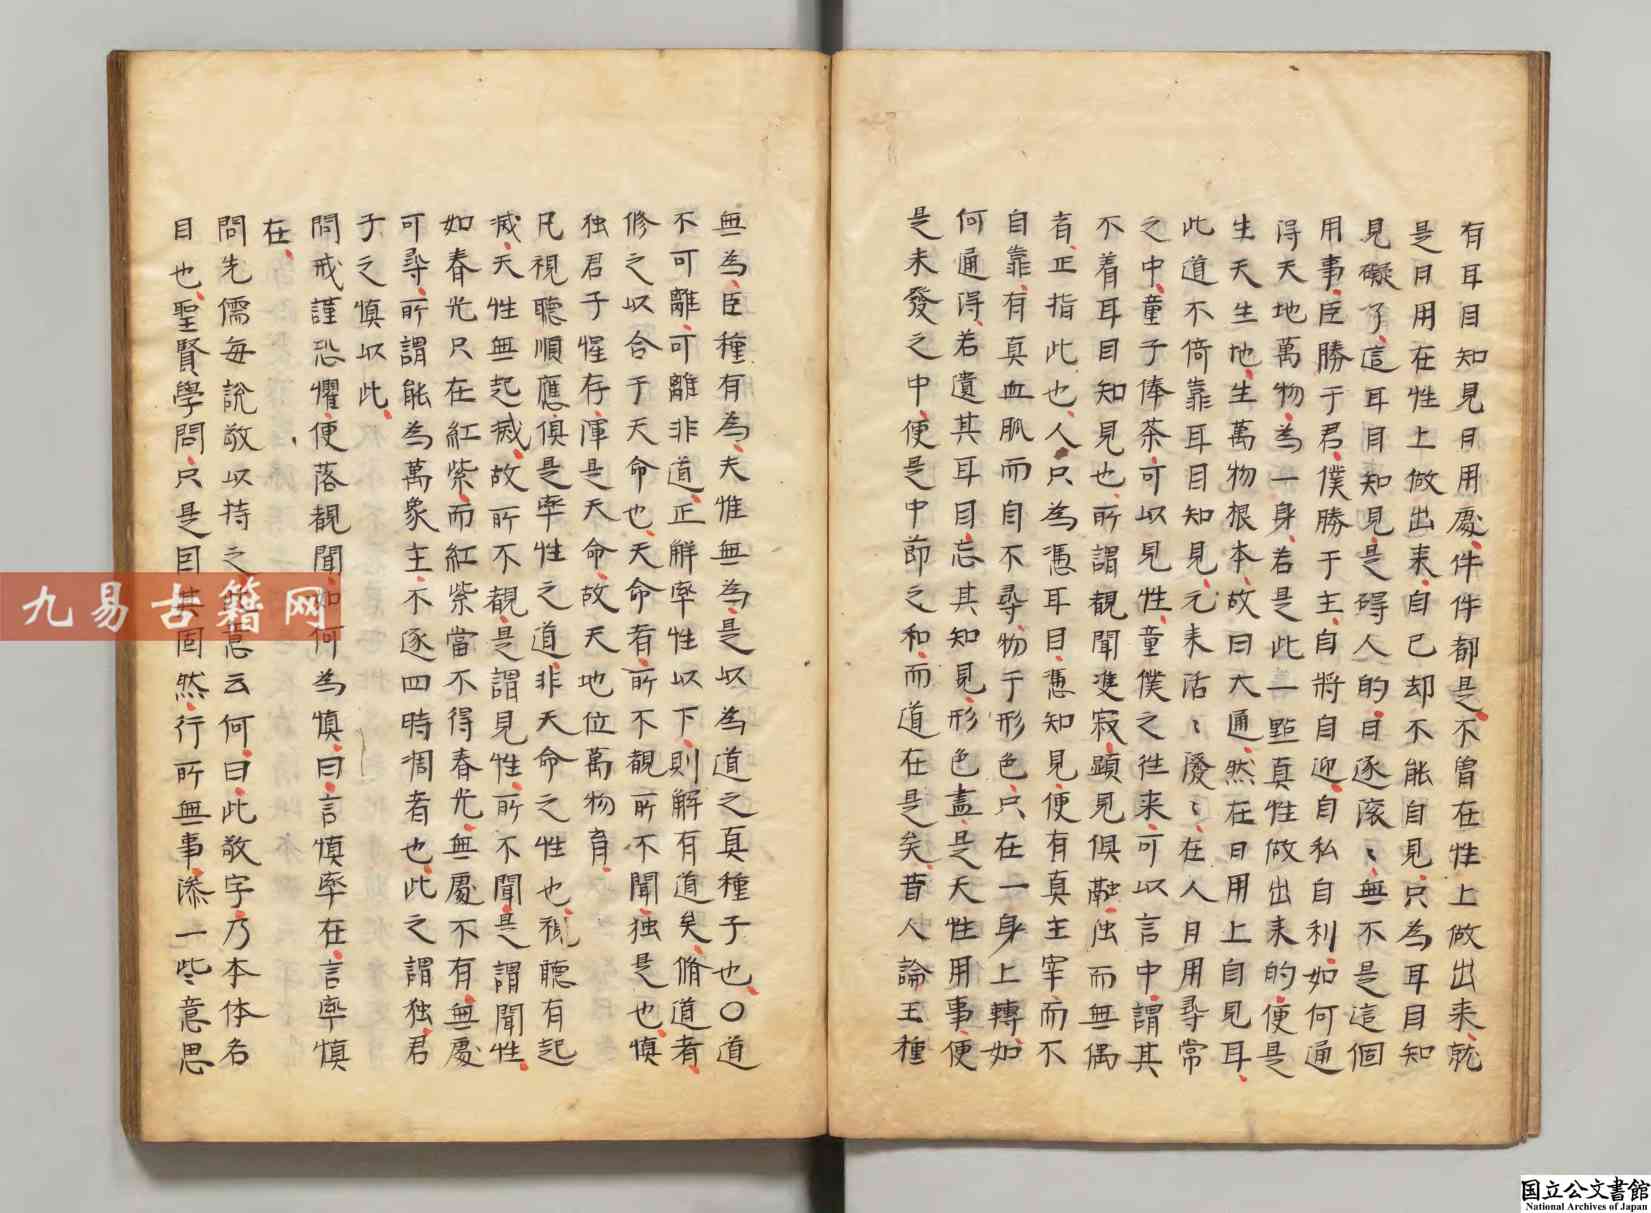 有耳目知見日用處件件都是不曾在性上做出来就
是日用在性上做出来自己却不能自見只為耳目知
見礙了這耳目知見是碍人的目逐滚〻無不是這個
用事臣勝于君僕勝于主自將自迎自私自利如何通
得天地萬物為一身若是此一點真性做出来的便是
生天生地生萬物根本故曰大通然在日用上自見耳
此道不倚靠耳目知見元来活〻廢〻在人日用尋常
之中童子俸茶可以見性童僕之徃来可以言中謂其
不着耳目知見也所謂覩聞雙寂顕見俱融独而無偶
者正指此也人只為憑耳目憑知見便有真主宰而不
自靠有真血肌而自不尋物于形色只在一身上轉如
何通得若遺其耳目忘其知見形色盡是天性用事便
是未發之中便是中莭之和而道在是矣昔人論王種
無為臣種有為夫惟無為是以為道之真種子也〇道
不可離可離非道正解率性以下則解有道矣脩道者
修之以合于天命也天命者所不覩所不聞独是也慎
独君子惺存渾是天命故天地位萬物育
凡視聽順應俱是率性之道非天命之性也視聽有起
滅天性無起滅故所不覩是謂見性所不聞是謂聞性
如春光只在紅紫而紅紫當不得春光無處不有無處
可尋所謂能為萬象主不逐四時凋者也此之謂独君
子之慎以此
問戒謹恐懼便落覩聞如何為慎曰言慎率在言率慎
在
問先儒每說敬以持之此意云何曰此敬字乃本体名
目也聖賢學問只是因其固然行所無事添一些意思
九易古籍网
国立公文書館
National Archives of Japan